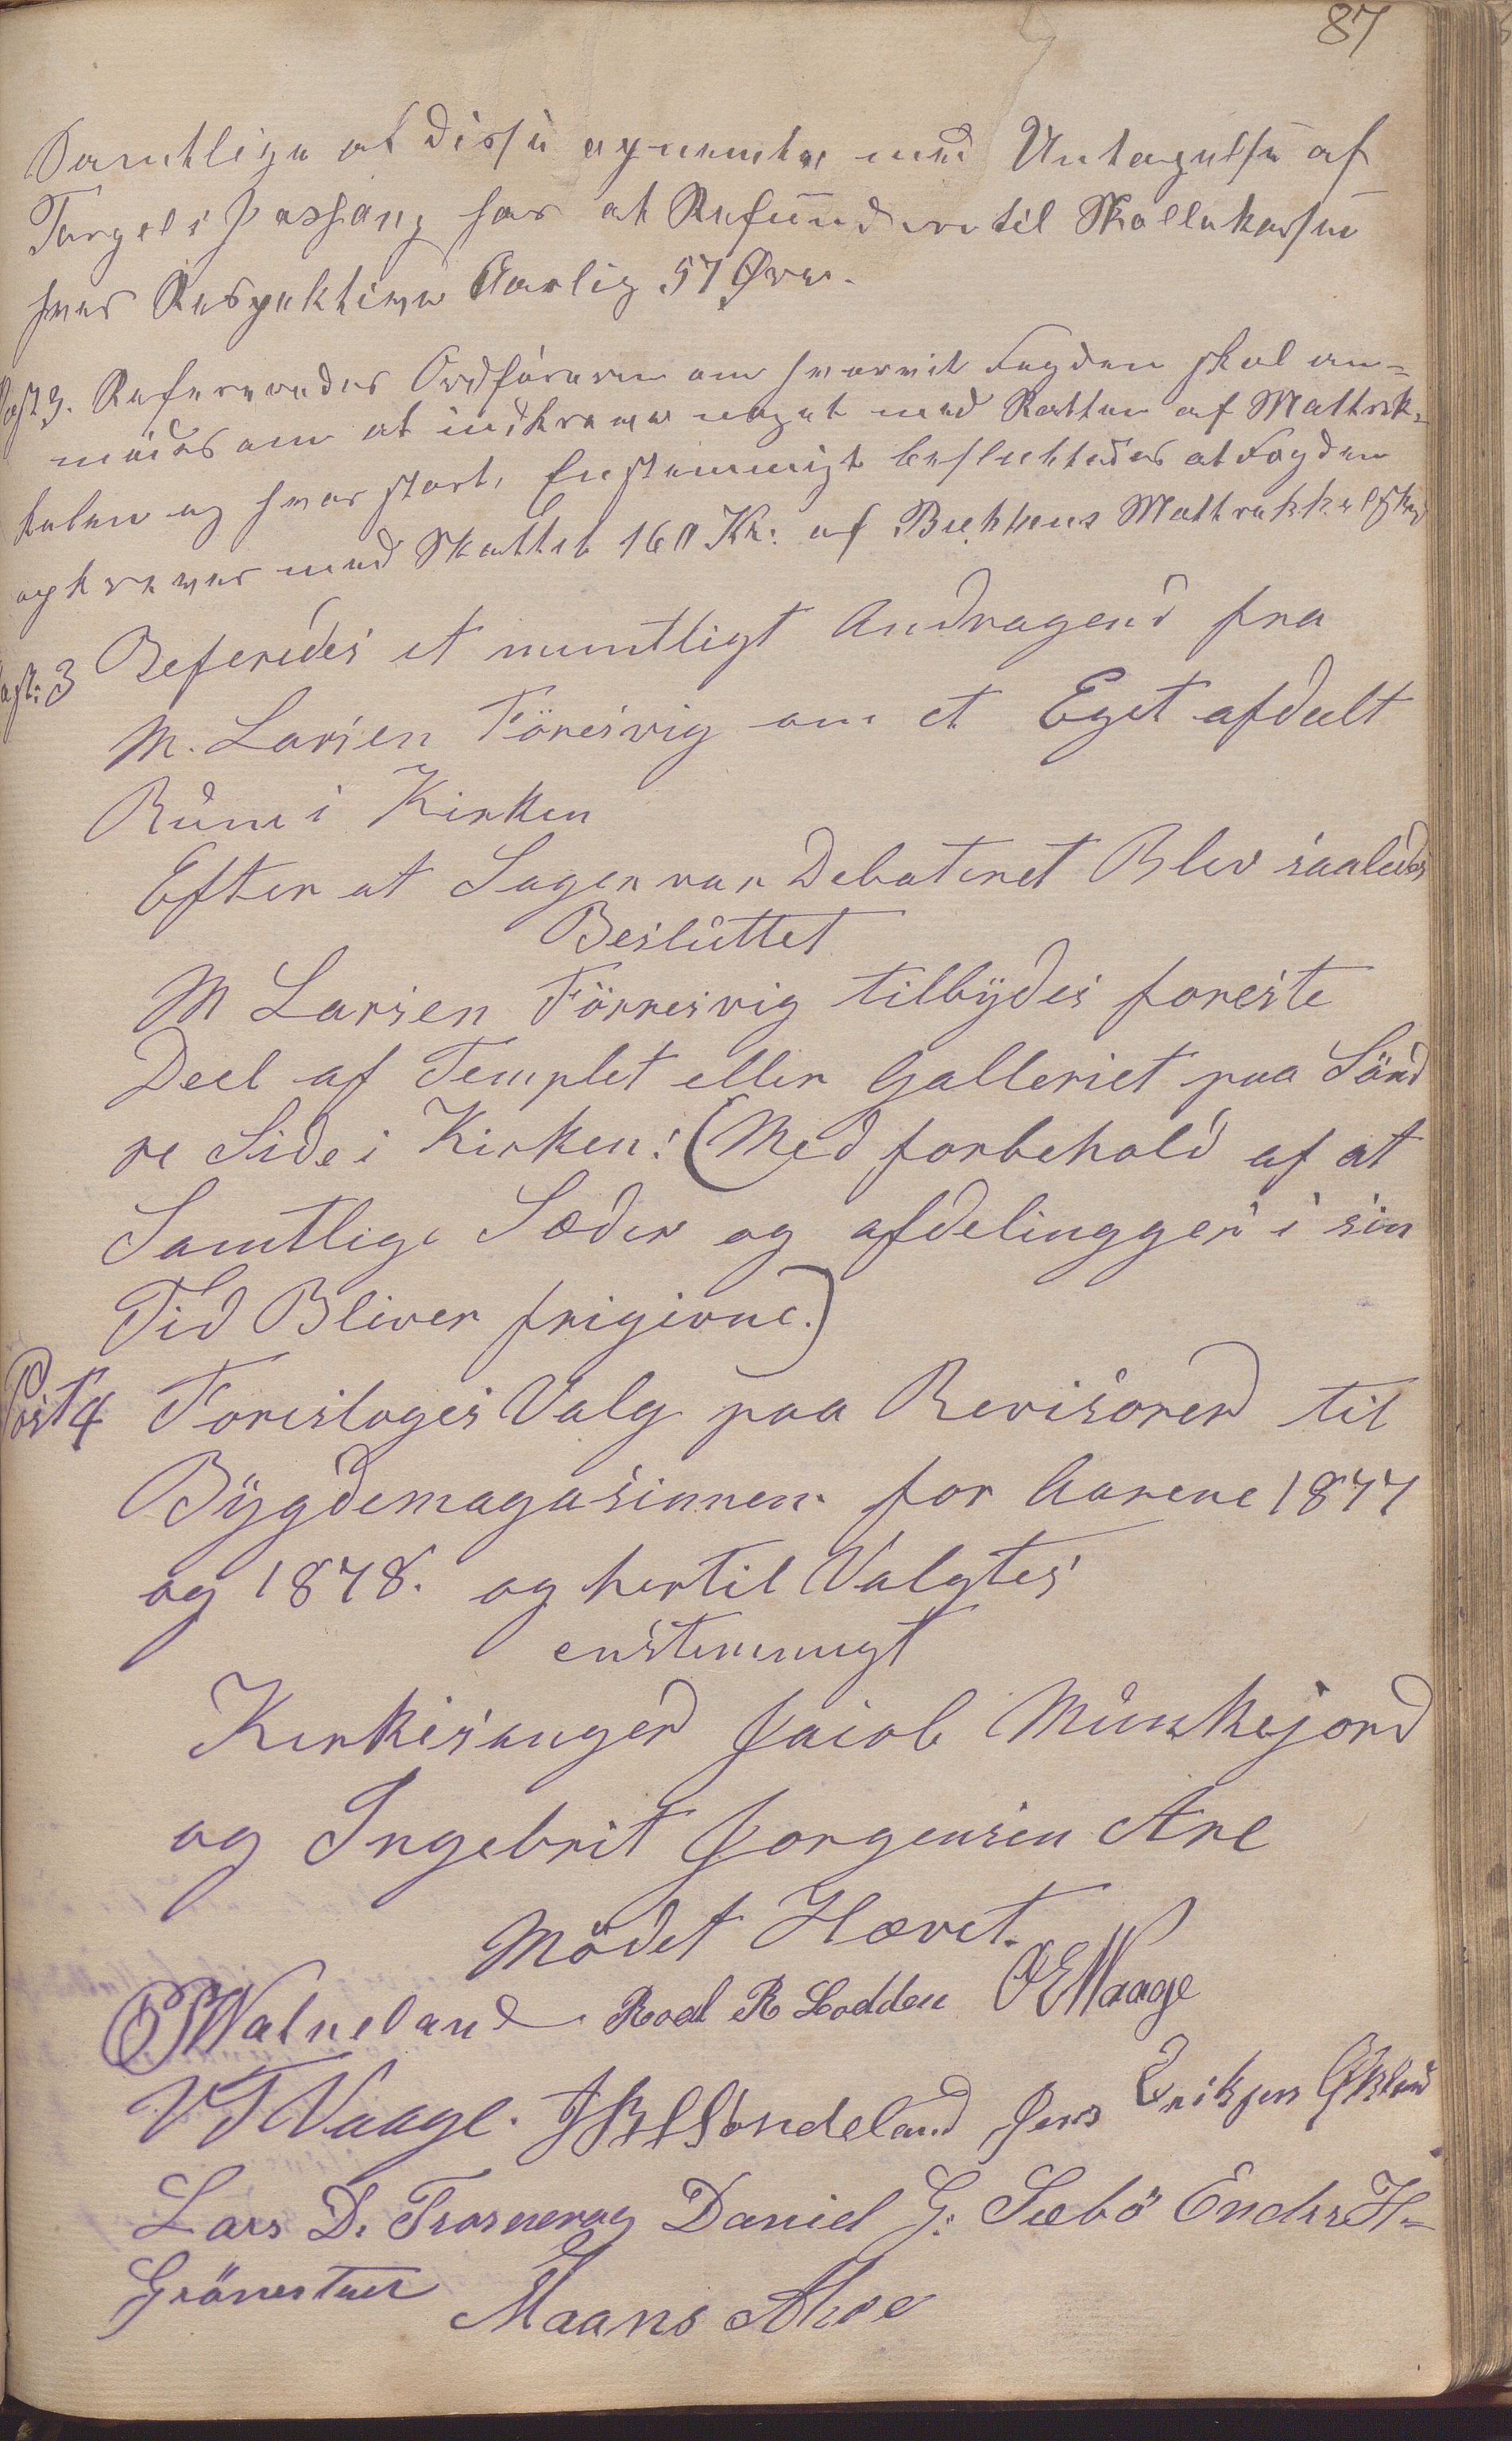 87
Samtlige af disse opnemte med Untagelse af
Torgels har at Refundere til Skollekassen
hver Respektive Aarlig 57 Øre.
Post 3. Refereredes Ordføreren om hvorvit Fogden skal an-
modes om at indkreve noget med Ratten af Mattrik-
kelen og hvor stort, Enstemmigt besluttedes at Fogden
opkrever med Skattet 160 Kr. af Bukkens
Post: 3 Referedes et mundtligt Andragend fra
M. Larsen Föresvig om et Eget afdeelt
Rum i Kirken
Efter at Sagen var Debateret Blev saaledes
Besluttet
M Larsen Förresvig tilbydes foreste
Deel af Templet eller Galleriet paa Sönd
re Side i Kirken: (Med forbehold af at
Samtlige Sæder og afdelingger i sin
Tid Bliver frigivne.)
Post 4 Foresloges Valg paa Revisorer til
Bygdemagasinnem for Aarene 1877
og 1878. og hertil Valgtes
enstemmigt
Kirkesanger Jacob Munkejord
og Ingebrit Jorgensen Are
Mödet Hævet.
Vatneland Roel R Lodden O E Vaage
V T Vaage. Söndeland Jens Eriksen Økland
Lars D. Daniel G. Sæbö Endre H-
Grönestad Maans Alsoe